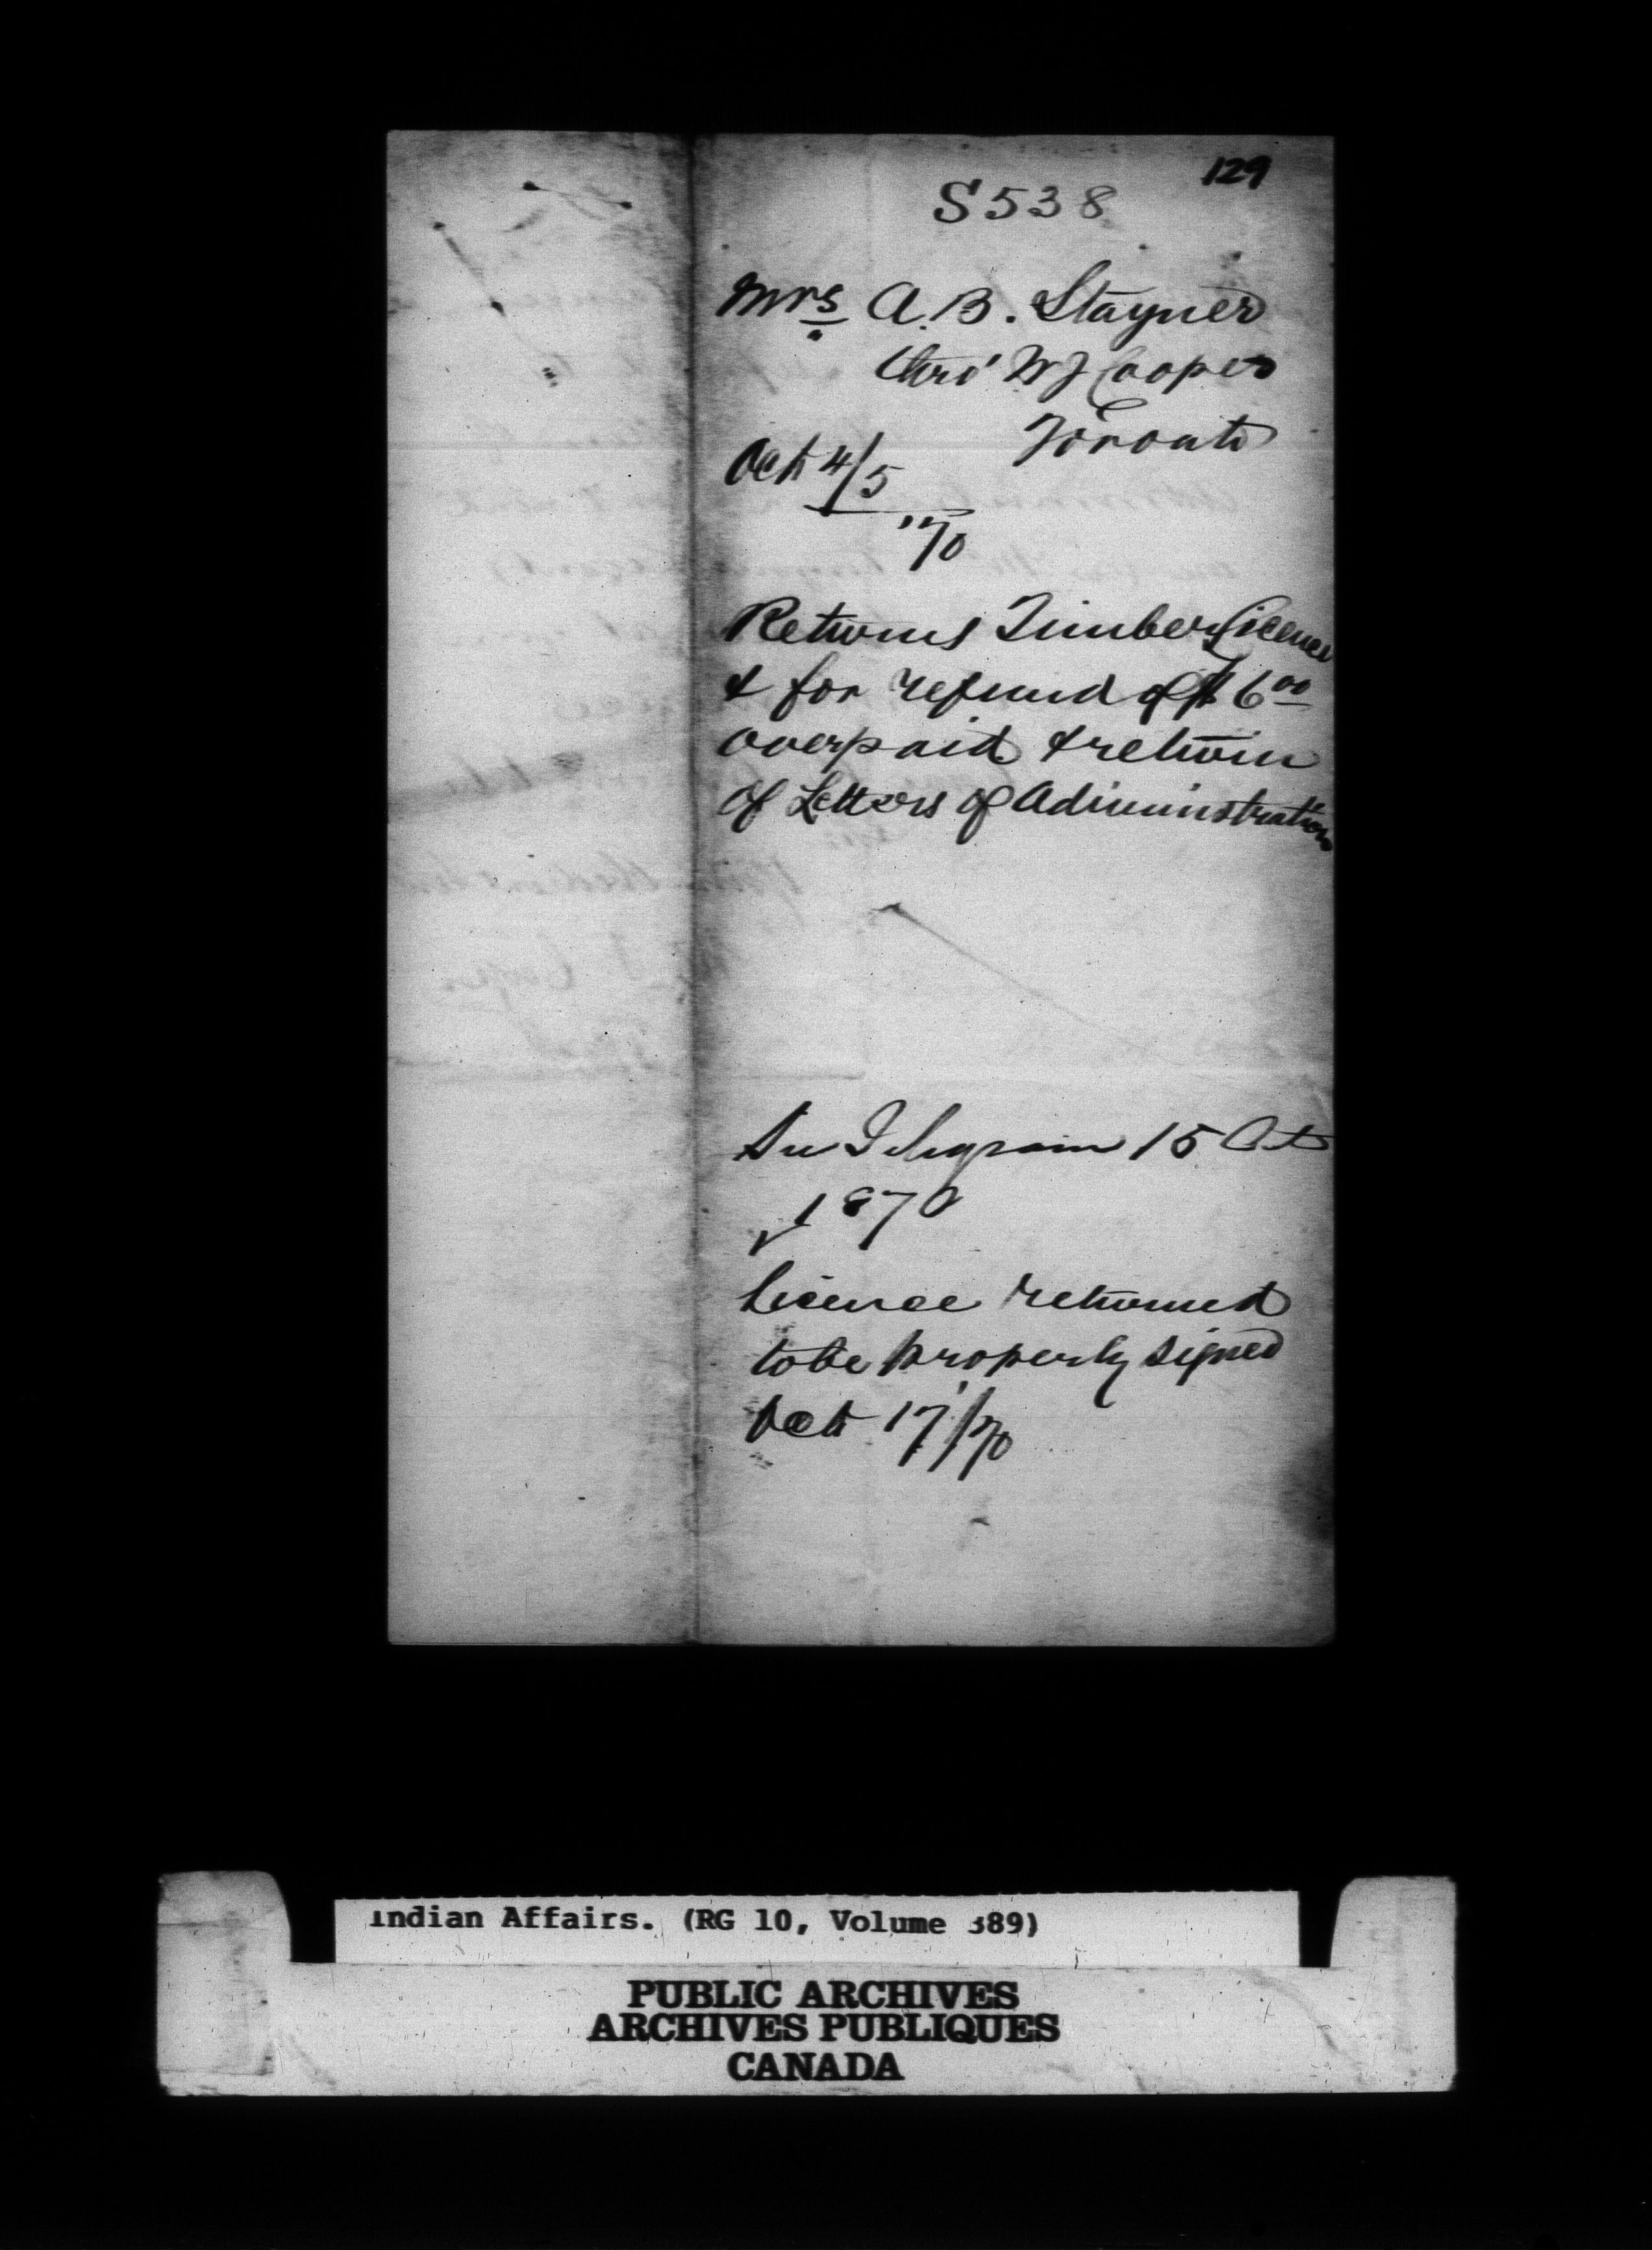 129
S538
Mrs A. B. Stayner
thro' W J Cooper
Toronto
Oct 4/5
'70
Returns Timber Licence
& for refund of $6 00
overpaid & return
of Letters of Administration
See Telegram 15 Oct
1870
Licence returned
to be properly signed
Oct 17/70
Indian Affairs. (RG 10, Volume 389)
PUBLIC ARCHIVES
ARCHIVES PUBLIQUES
CANADA